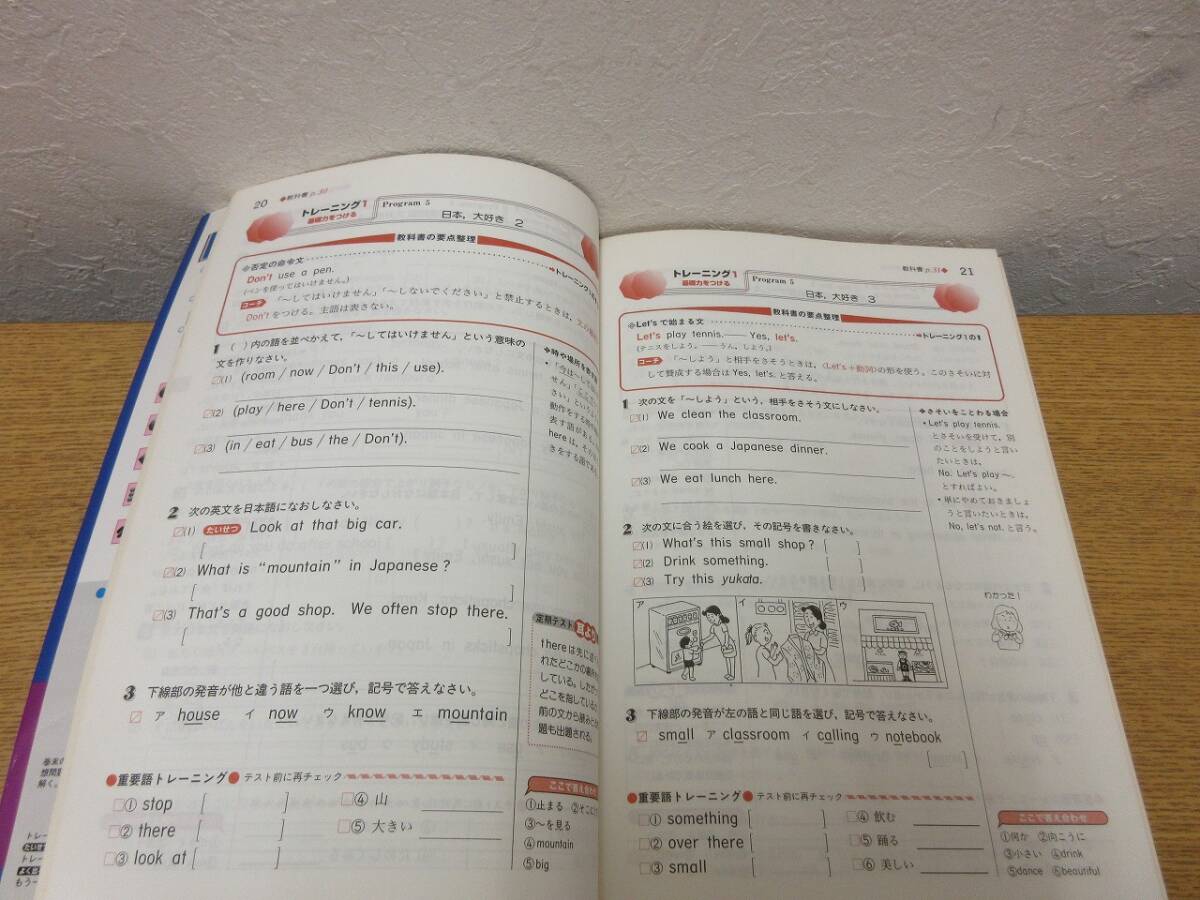 20 ◆教科書 p.30
トレーニング1
基礎力をつける
Program 5
日本，大好き 2
教科書の要点整理
❖否定の命令文
Don't use a pen.
(ペンを使ってはいけません。)
コーチ 「～してはいけません」「～しないでください」と禁止するときは，文の
Don'tをつける。主語は表さない。
1 ( )内の語を並べかえて，「～してはいけません」という意味の
文を作りなさい。
(1) (room / now / Don't / this / use).
(2) (play / here / Don't / tennis).
(3) (in / eat / bus / the / Don't).
2 次の英文を日本語になおしなさい。
(1) たいせつ Look at that big car.
[ ]
(2) What is “mountain” in Japanese ?
[ ]
(3) That's a good shop. We often stop there.
[ ]
3 下線部の発音が他と違う語を一つ選び，記号で答えなさい。
ア house イ now ウ know エ mountain
●重要語トレーニング● テスト前に再チェック
① stop [ ]
② there [ ]
③ look at [ ]
④ 山
⑤ 大きい
❖時や場所を
定期テスト
thereは先に述べ
れたどこかの場所
している。したが
どこを指しているか
前の文から読みと
題も出題される。
ここで答え合わせ
①止まる ②そこに
③～を見る
④mountain
⑤big
教科書 p.31◆ 21
トレーニング1
基礎力をつける
Program 5
日本，大好き 3
教科書の要点整理
❖Let's で始まる文
→トレーニング1の1
Let's play tennis.── Yes, let's.
(テニスをしよう。──うん，しよう。)
コーチ 「～しよう」と相手をさそうときは，〈Let's＋動詞〉の形を使う。このさそいに対
して賛成する場合は Yes, let's. と答える。
1 次の文を「～しよう」という，相手をさそう文にしなさい。
(1) We clean the classroom.
(2) We cook a Japanese dinner.
(3) We eat lunch here.
❖さそいをことわる場合
• Let's play tennis.
とさそいを受けて，別
のことをしようと言い
たいときは，
No. Let's play ～.
とすればよい。
• 単にやめておきましょ
うと言いたいときは，
No, let's not. と言う。
2 次の文に合う絵を選び，その記号を書きなさい。
(1) What's this small shop ? [ ]
(2) Drink something. [ ]
(3) Try this yukata. [ ]
ア イ ウ
わかった！
3 下線部の発音が左の語と同じ語を選び，記号で答えなさい。
small ア classroom イ calling ウ notebook
[ ]
●重要語トレーニング● テスト前に再チェック
① something [ ]
② over there [ ]
③ small [ ]
④ 飲む
⑤ 踊る
⑥ 美しい
ここで答え合わせ
①何か ②向こうに
③小さい ④drink
⑤dance ⑥beautiful